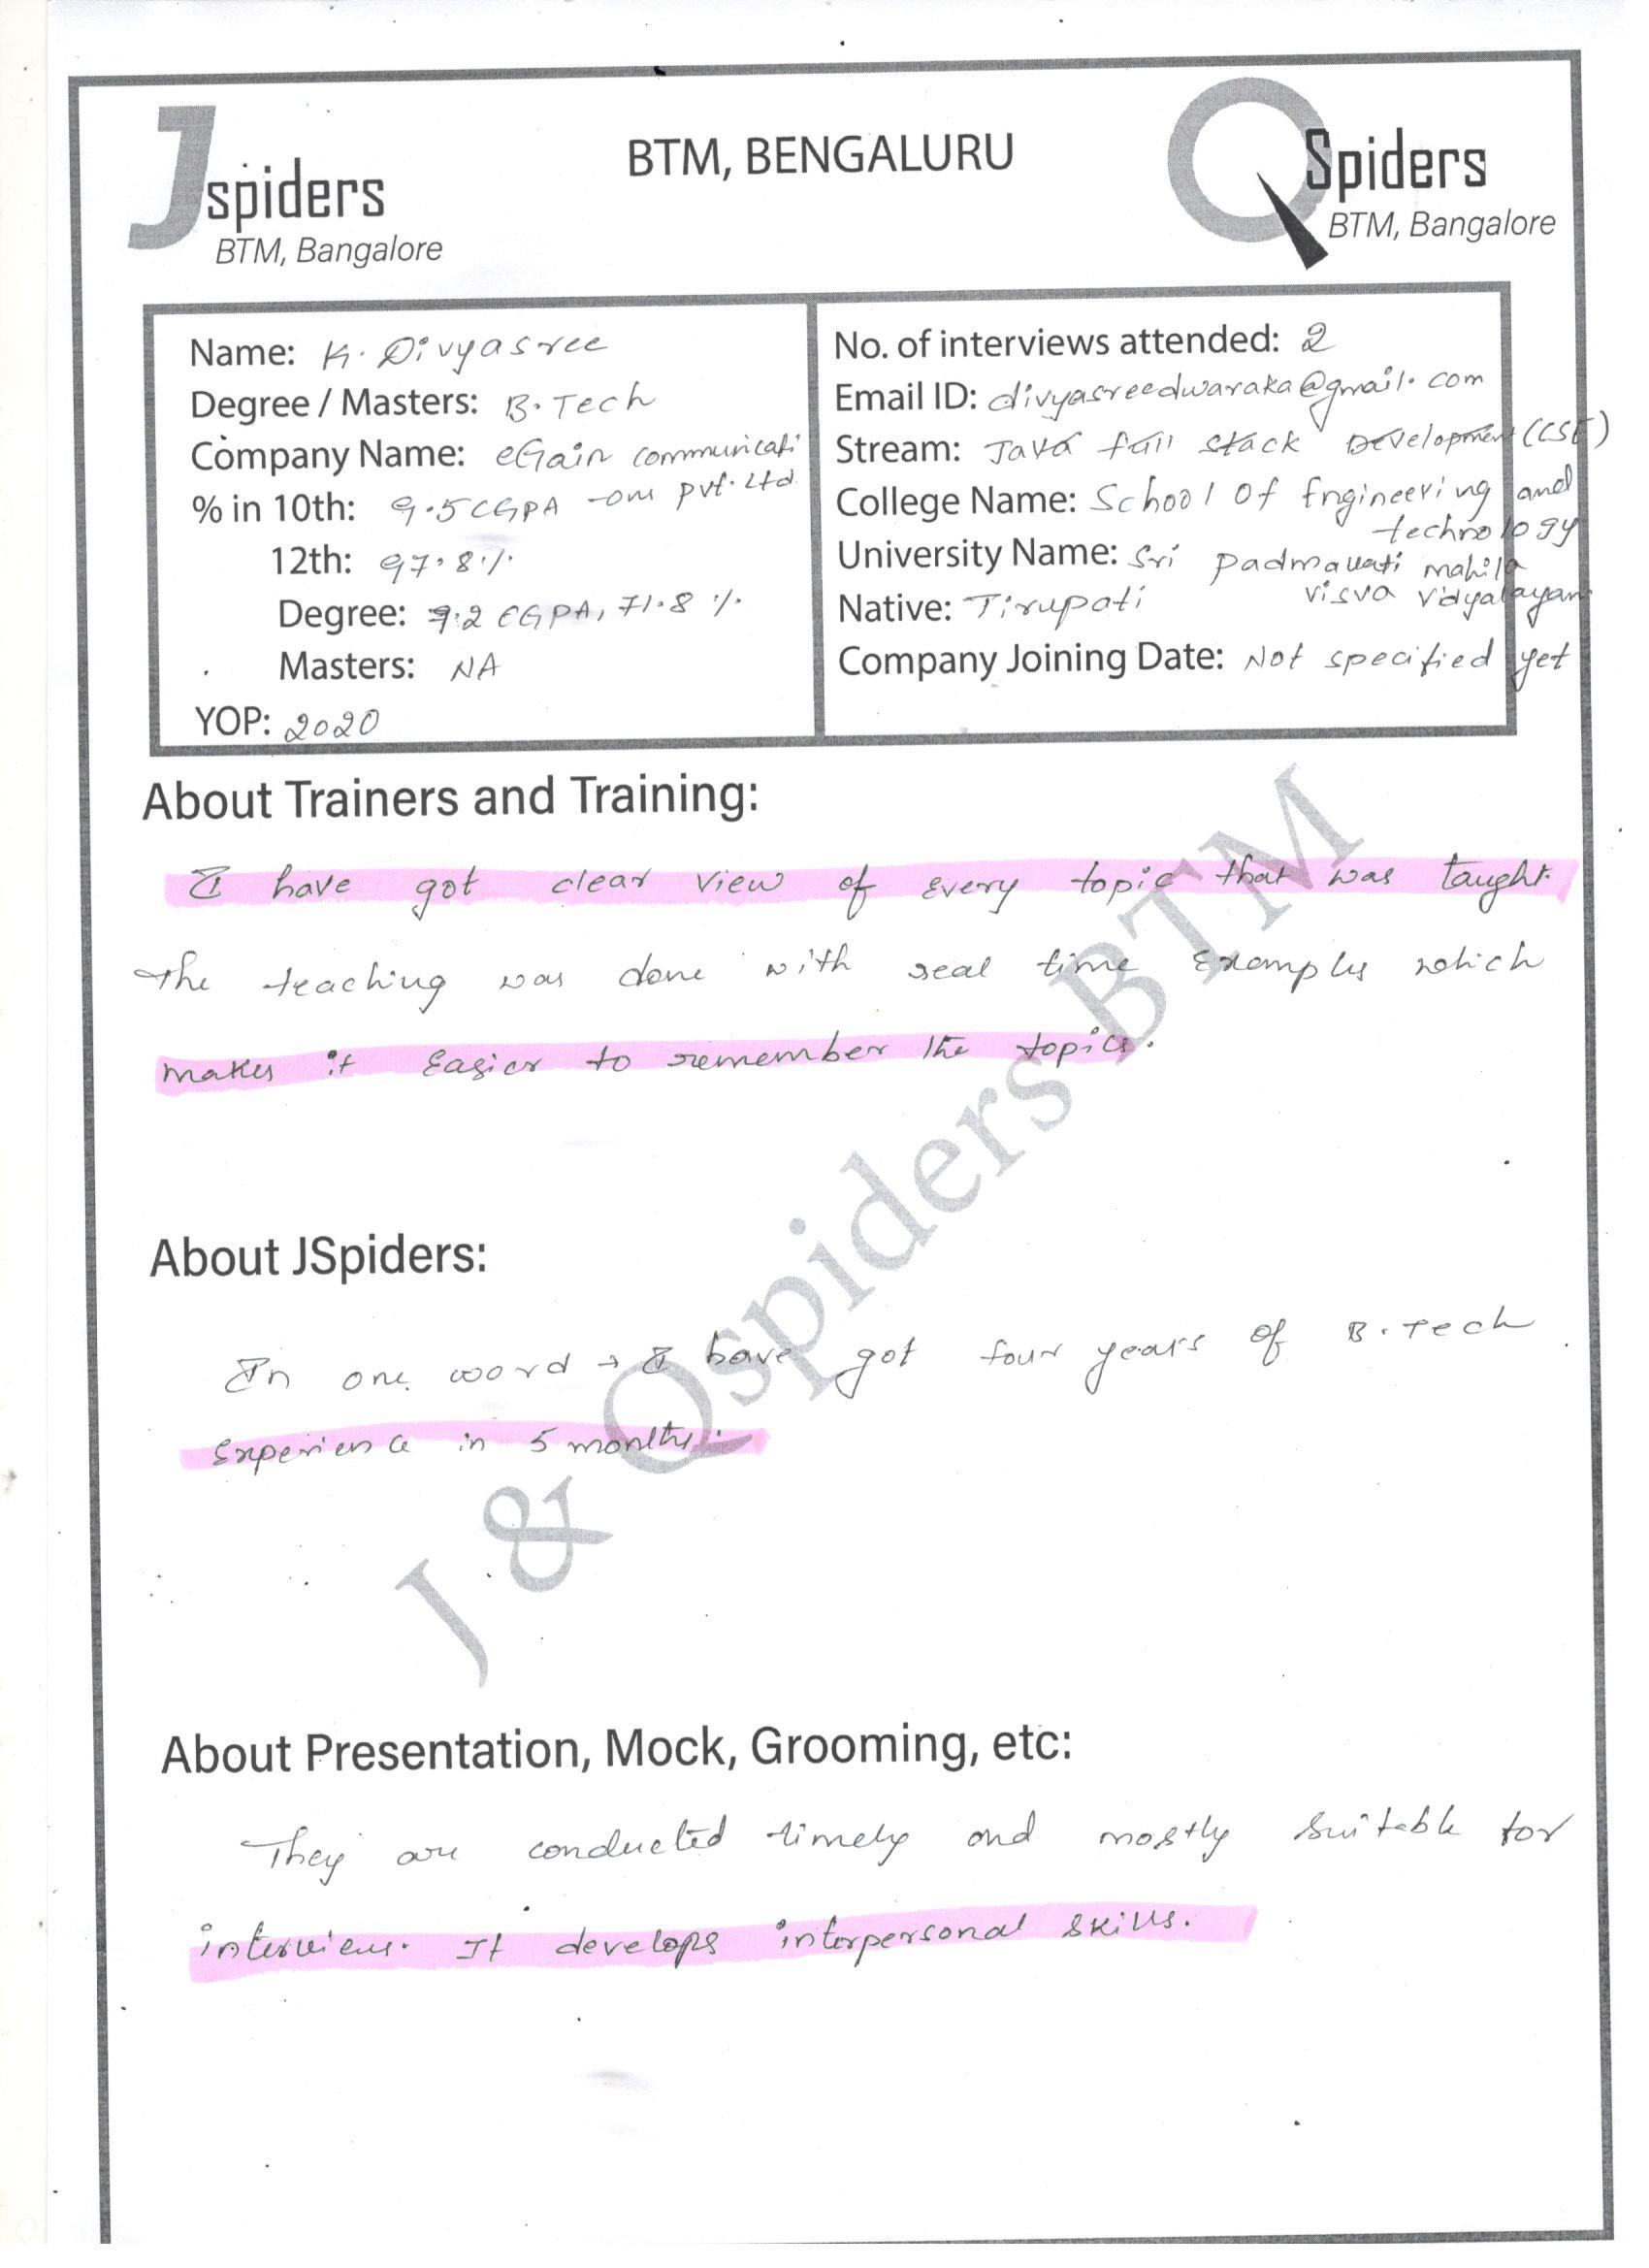 Jspiders
BTM, Bangalore
BTM, BENGALURU
QSpiders
BTM, Bangalore
Name: K. Divyasree
Degree / Masters: B.Tech
Company Name: eGain communicati
-ons pvt. Ltd
% in 10th: 9.5 CGPA
12th: 97.8 %
Degree: 7.2 CGPA, 71.8 %
Masters: NA
YOP: 2020
No. of interviews attended: 2
Email ID: divyasreedwaraka@gmail.com
Stream: Java full stack Development (CSE)
College Name: School Of Engineering and
technology
University Name: Sri padmavati mahila
visva vidyalayam
Native: Tirupati
Company Joining Date: Not specified yet
About Trainers and Training:
I have got clear view of every topic that was taught.
The teaching was done with real time examples which
makes it easier to remember the topics.
About JSpiders:
In one word → I have got four years of B.Tech
experience in 5 months.
About Presentation, Mock, Grooming, etc:
They are conducted timely and mostly suitable for
interviews. It develops interpersonal skills.
J & Qspiders BTM